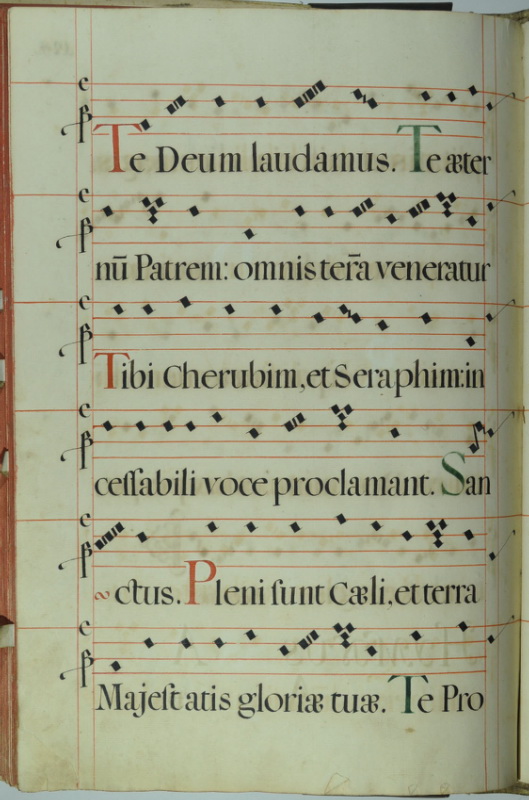 Te Deum laudamus. Te æter
nū Patrem: omnis ter̃a veneratur
Tibi Cherubim, et Seraphim: in
ceſſabili voce proclamant. San
ctus. Pleni ſunt Cæli, et terra
Majeſtatis gloriæ tuæ. Te Pro